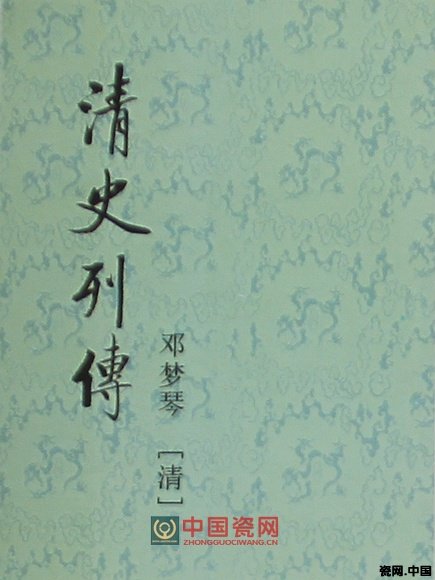 清史列傳
邓梦琴
[清]
中国瓷网
ZHONGGUOCIWANG.CN
瓷网.中国